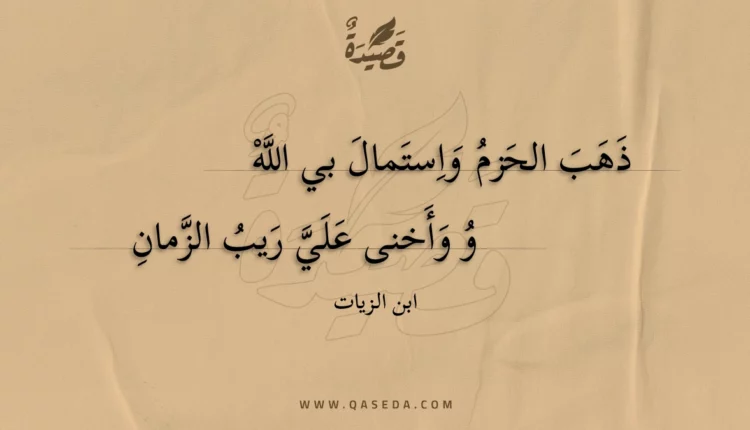 قَصِيْدَةٌ
ذَهَبَ الحَزمُ وَاِستَمالَ بي اللَّهْ
وُ وَأَخنى عَلَيَّ رَيبُ الزَّمانِ
ابن الزيات
WWW.QASEDA.COM